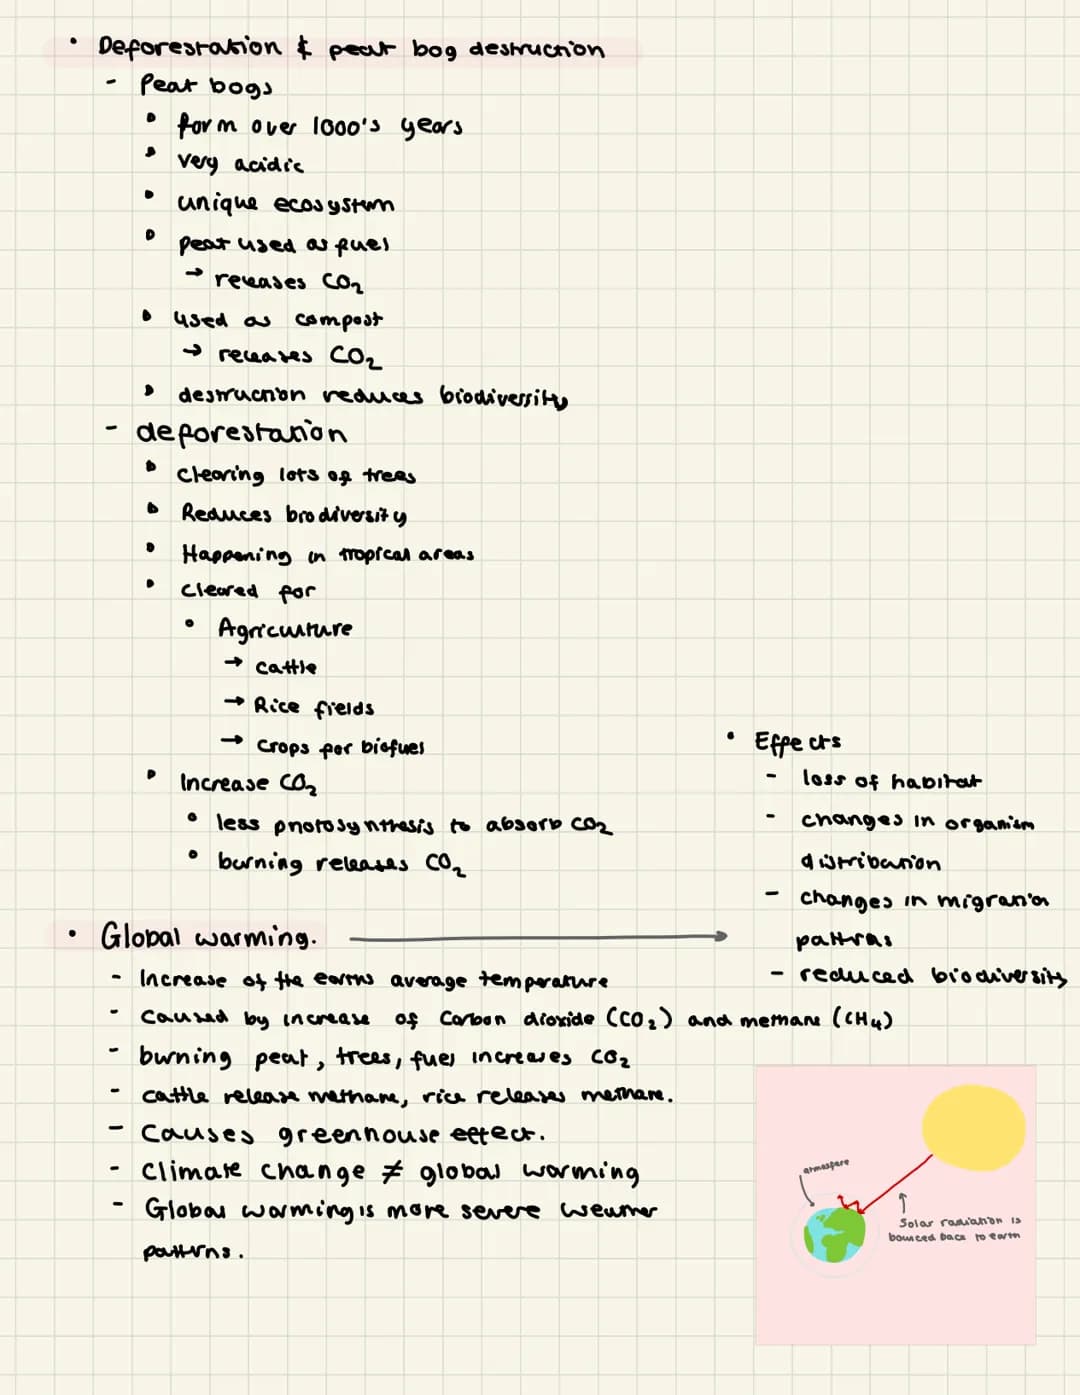 • Deforestation & peat bog destruction
- Peat bogs
• form over 1000's years
• very acidic
• unique ecosystem
• peat used as fuel
→ releases CO₂
• used as compost
→ releases CO₂
• destruction reduces biodiversity
- deforestation
• Clearing lots of trees
• Reduces biodiversity
• Happening in tropical areas
• Cleared for
• Agriculture
→ cattle
→ Rice fields
→ Crops for biofuel
• Increase CO₂
• less photosynthesis to absorb CO₂
• burning releases CO₂
• Global warming.
- Increase of the earths average temperature
- Caused by increase of Carbon dioxide (CO₂) and methane (CH₄)
- burning peat, trees, fuel increases CO₂
- cattle release methane, rice releases methane.
- Causes greenhouse effect.
- Climate change ≠ global warming
- Global warming is more severe weather
patterns.
• Effects
- loss of habitat
- changes in organism
distribution
- changes in migration
patterns
- reduced biodiversity
atmospere
Solar radiation is
bounced back to earth